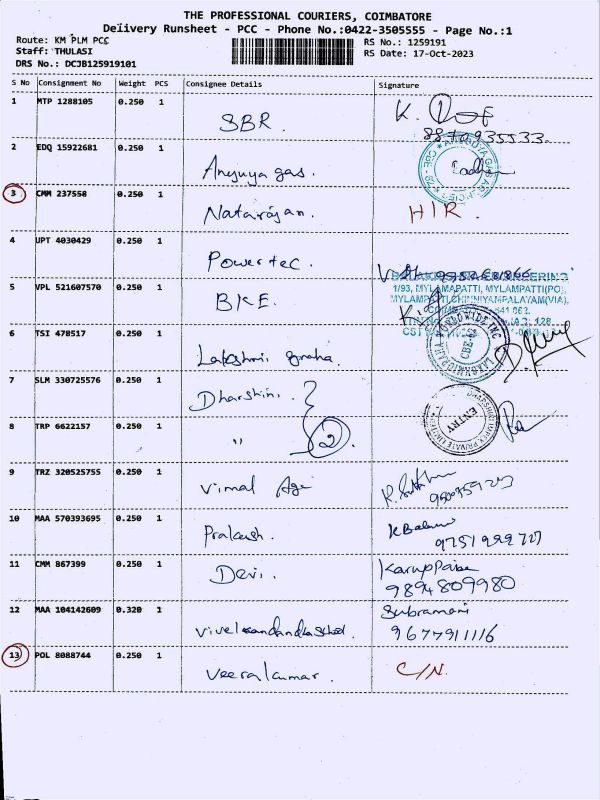 THE PROFESSIONAL COURIERS, COIMBATORE
Delivery Runsheet - PCC - Phone No.:0422-3505555 - Page No.:1
Route: KM PLM PCC
Staff: THULASI
DRS No.: DCJB125919101
RS No.: 1259191
RS Date: 17-Oct-2023
S No Consignment No Weight PCS Consignee Details Signature
1 MTP 1288105 0.250 1 SBR. K.
8870935533.
2 EDQ 15922681 0.250 1 Anyuya gas.
3 CMM 237558 0.250 1 Natarajan. HIR.
4 UPT 4030429 0.250 1 Powertec.
1/93, MYLAMAPATTI, MYLAMPATTI(PO),
5 VPL 521607570 0.250 1 BKE.
6 TSI 478517 0.250 1 Lakshmi graha.
7 SLM 330725576 0.250 1 Dharshini.
ENTRY
8 TRP 6622157 0.250 1 " 2.
9 TRZ 320525755 0.250 1 Vimal Age
10 MAA 570393695 0.250 1 Prakash. KBalani
9751999727
11 CMM 867399 0.250 1 Devi. Karuppaiea
9894809980
12 MAA 104142609 0.320 1 Subramani
9677911116
13 POL 8088744 0.250 1 Veerakumar. C/N.